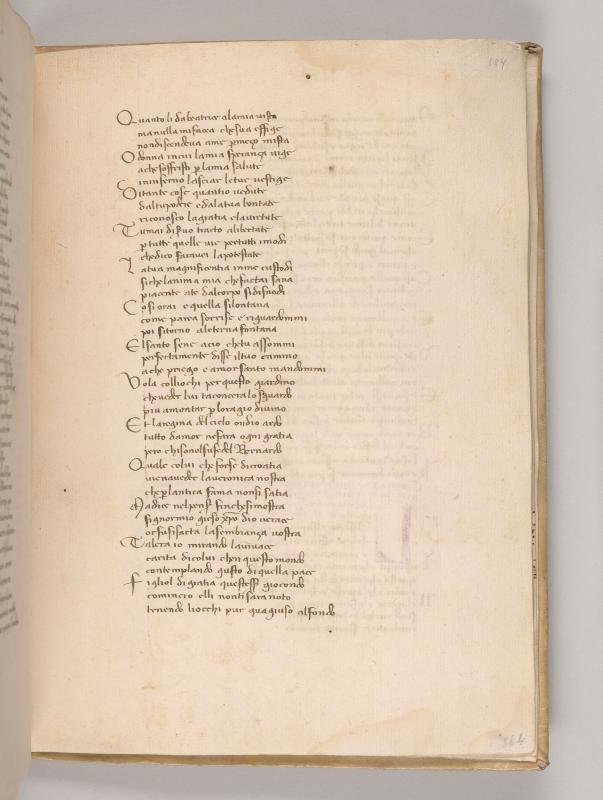 184
Quanto li da beatrice alamia vista
ma nulla mi facea che sua effige
non discendeva ame p mezo mista
O donna incui lamia speranza vige
ache soffristi p lamia salute
in inferno lasciar letue vestige
Ditante cose quantio vedute
dal tuo podere edala tua bontate
riconosco lagratia elavirtute
Tu mai di servo tracto alibertate
p tutte quelle vie per tutti imodi
che di co faravei lapotestate
La tua magnificentia inme custodi
si che lanima mia che factai sana
piacente ate dal corpo si disnodi
Cosi orai e quella si lontana
come parea sorrise e riguardommi
poi si torno aleterna fontana
El santo sene acio chetu assommi
perfectamente disse iltuo camino
ache priego e amor santo mandommi
Vola colliochi per questo giardino
che veder lui tacconcera lo sguardo
piu amontar p lo ragio divino
Et la regina del cielo ondio ardo
tutto damor ne fara ogni gratia
pero chi sono lsuo fedel Bernardo
Quale colui che forse di croatia
viene a veder laveronica nostra
che p lantica fama non si satia
Ma dice nel pensier fin che si mostra
signor mio gieso xpo dio verace
or fu si facta la sembianza vostra
Tal era io mirando lavivace
carita di colui chen questo mondo
contemplando gusto di quella pace
Figliol di gratia questesser giocondo
comincio elli non ti sara noto
tenendo liocchi pur qua giuso al fondo
184